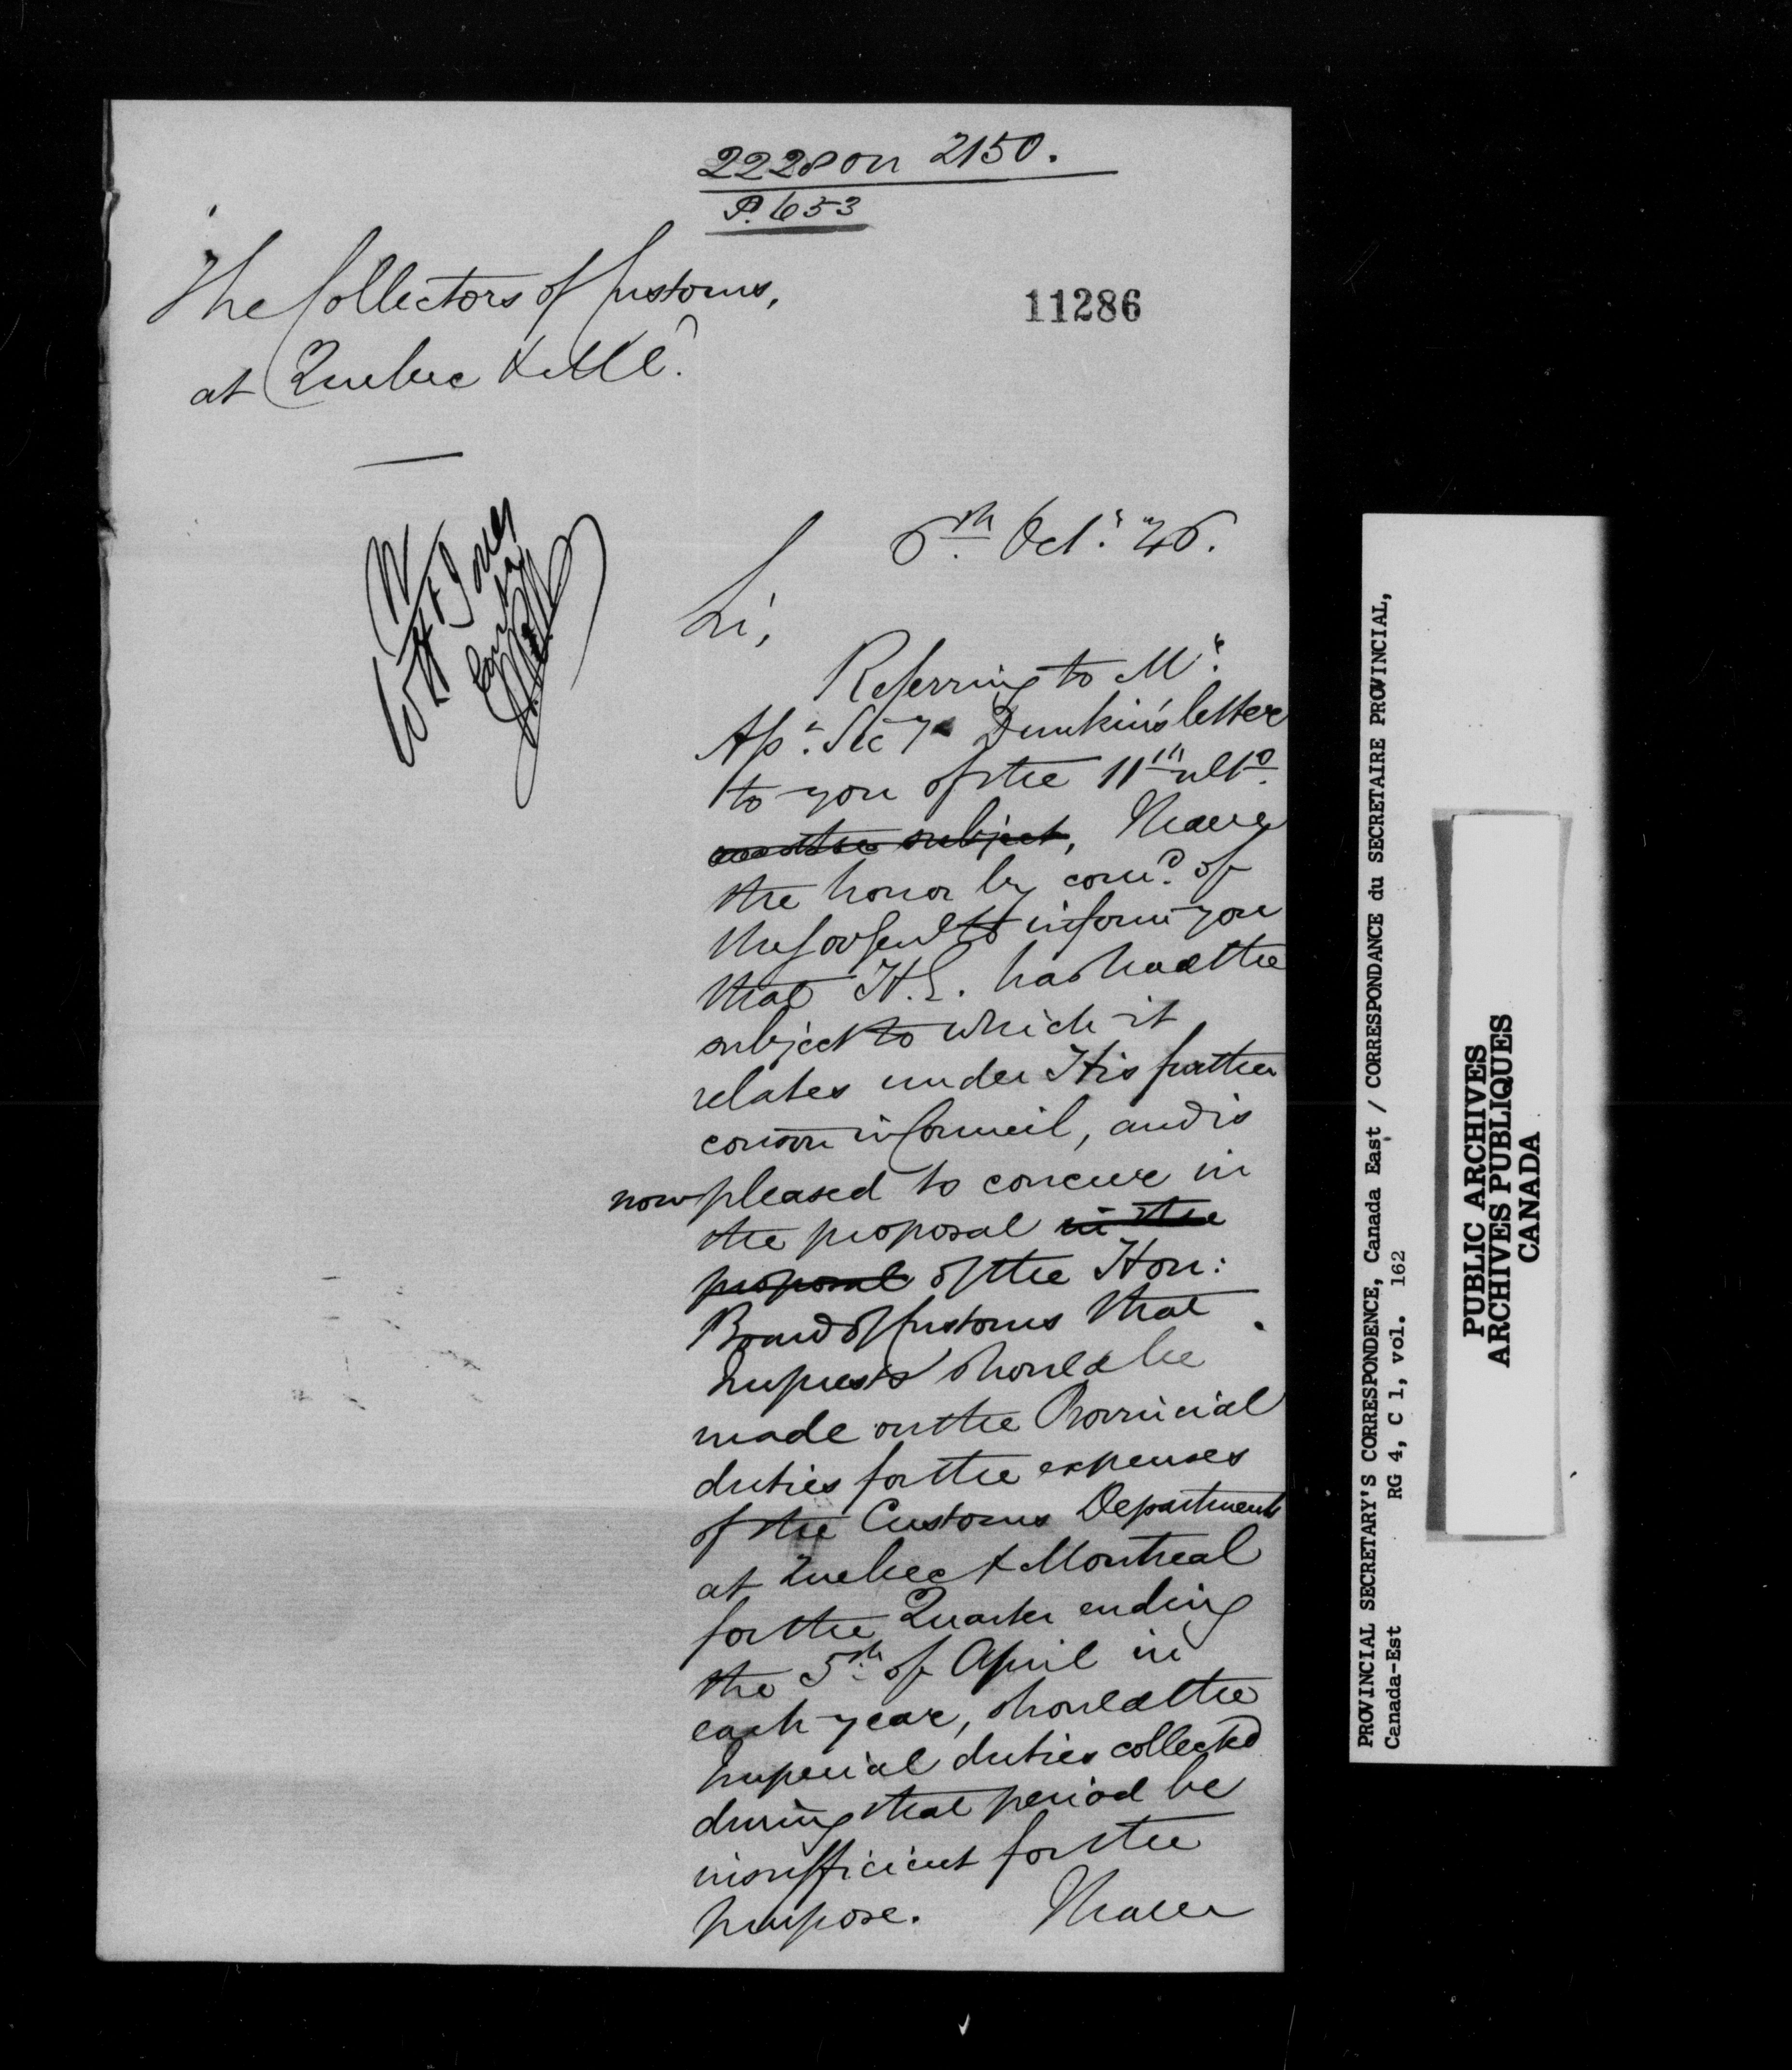 2228 on 2150.
P. 653
The Collectors of Customs,
at Quebec & Mtl.
11286
6th Oct.r 46.
Sir,
Referring to Mr.
Ast. Secy. Dunkin's letter
to you of the 11th ulto.
on the subject, I have
the honor by comd. of
the Gov Genl to inform you
that H.E. has had the
subject to which it
relates under His further
conson in Council, and is
now pleased to concur in
the proposal in the
proposal of the Hon:
Board of Customs that
Imprests should be
made on the Provincial
duties for the expenses
of the Customs Departments
at Quebec & Montreal
for the Quarter ending
the 5th of April in
each year, should the
Imperial duties collected
during that period be
insufficient for the
purpose. I have
PROVINCIAL SECRETARY'S CORRESPONDENCE, Canada East / CORRESPONDANCE du SECRETAIRE PROVINCIAL,
Canada-Est RG 4, C 1, vol. 162
PUBLIC ARCHIVES
ARCHIVES PUBLIQUES
CANADA